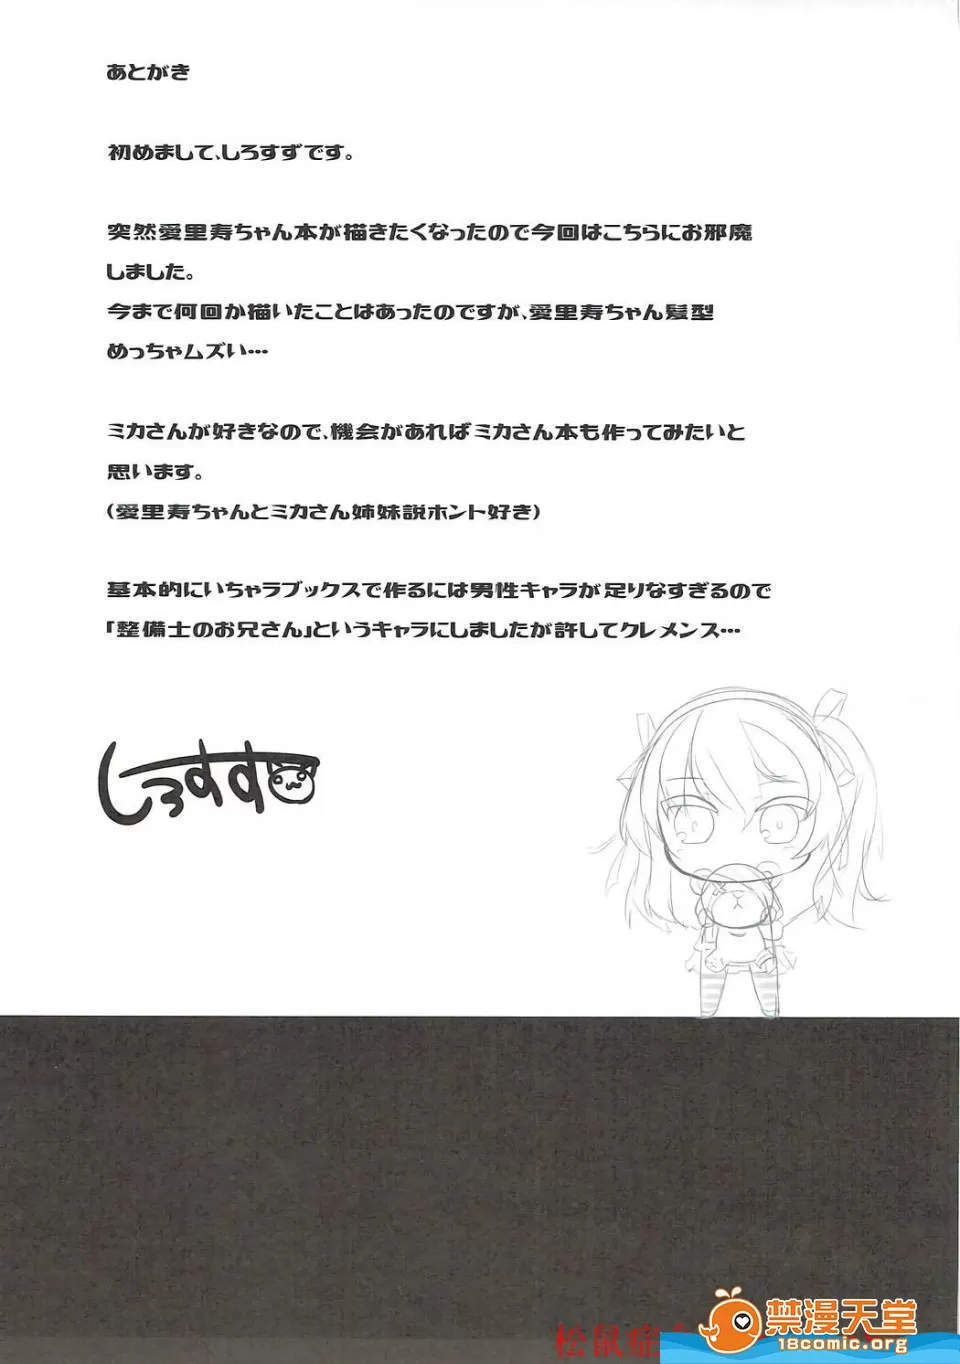 あとがき
初めまして、しろすずです。
突然愛里寿ちゃん本が描きたくなったので今回はこちらにお邪魔
しました。
今まで何回か描いたことはあったのですが、愛里寿ちゃん髪型
めっちゃムズい…
ミカさんが好きなので、機会があればミカさん本も作ってみたいと
思います。
(愛里寿ちゃんとミカさん姉妹説ホント好き)
基本的にいちゃラブックスで作るには男性キャラが足りなすぎるので
「整備士のお兄さん」というキャラにしましたが許してクレメンス…
しろすず
禁漫天堂
18comic.org
松鼠症